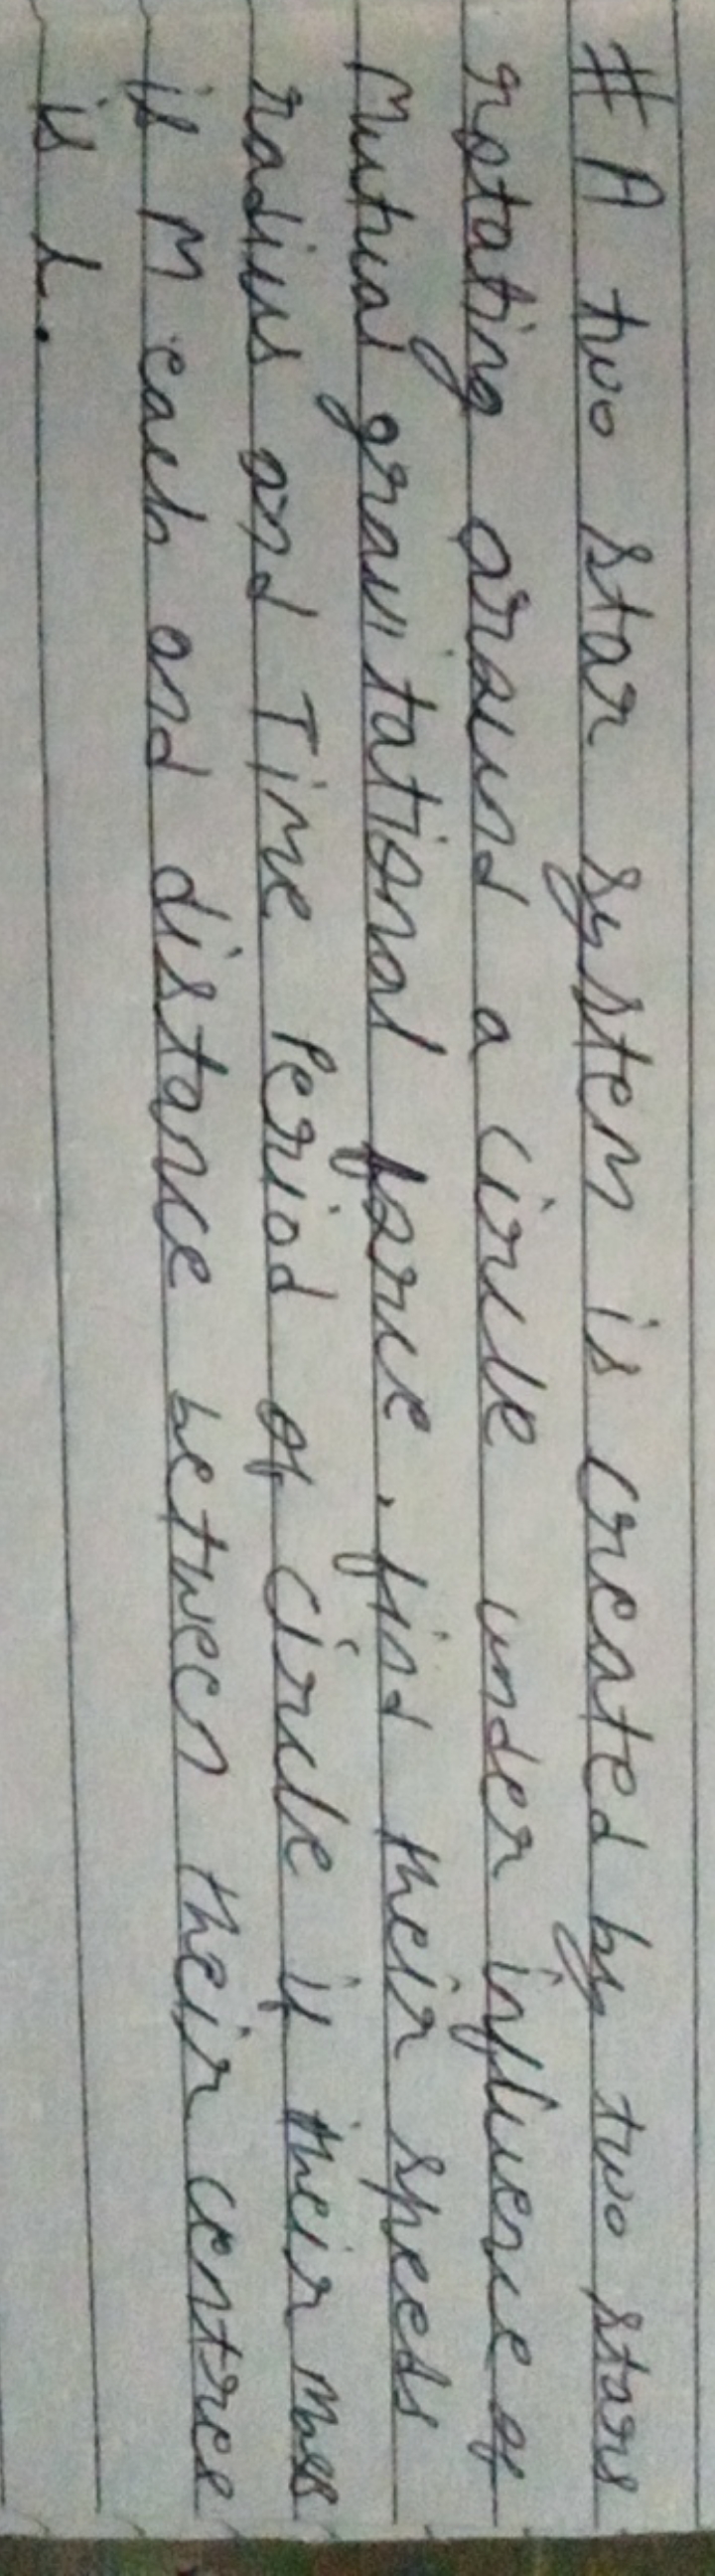 # A two star system is created by two stars
rotating around a circle under influence of
Mutual gravitational force. find their speeds
radius and Time Period of circle if their mass
is M each and distance between their centres
is L.